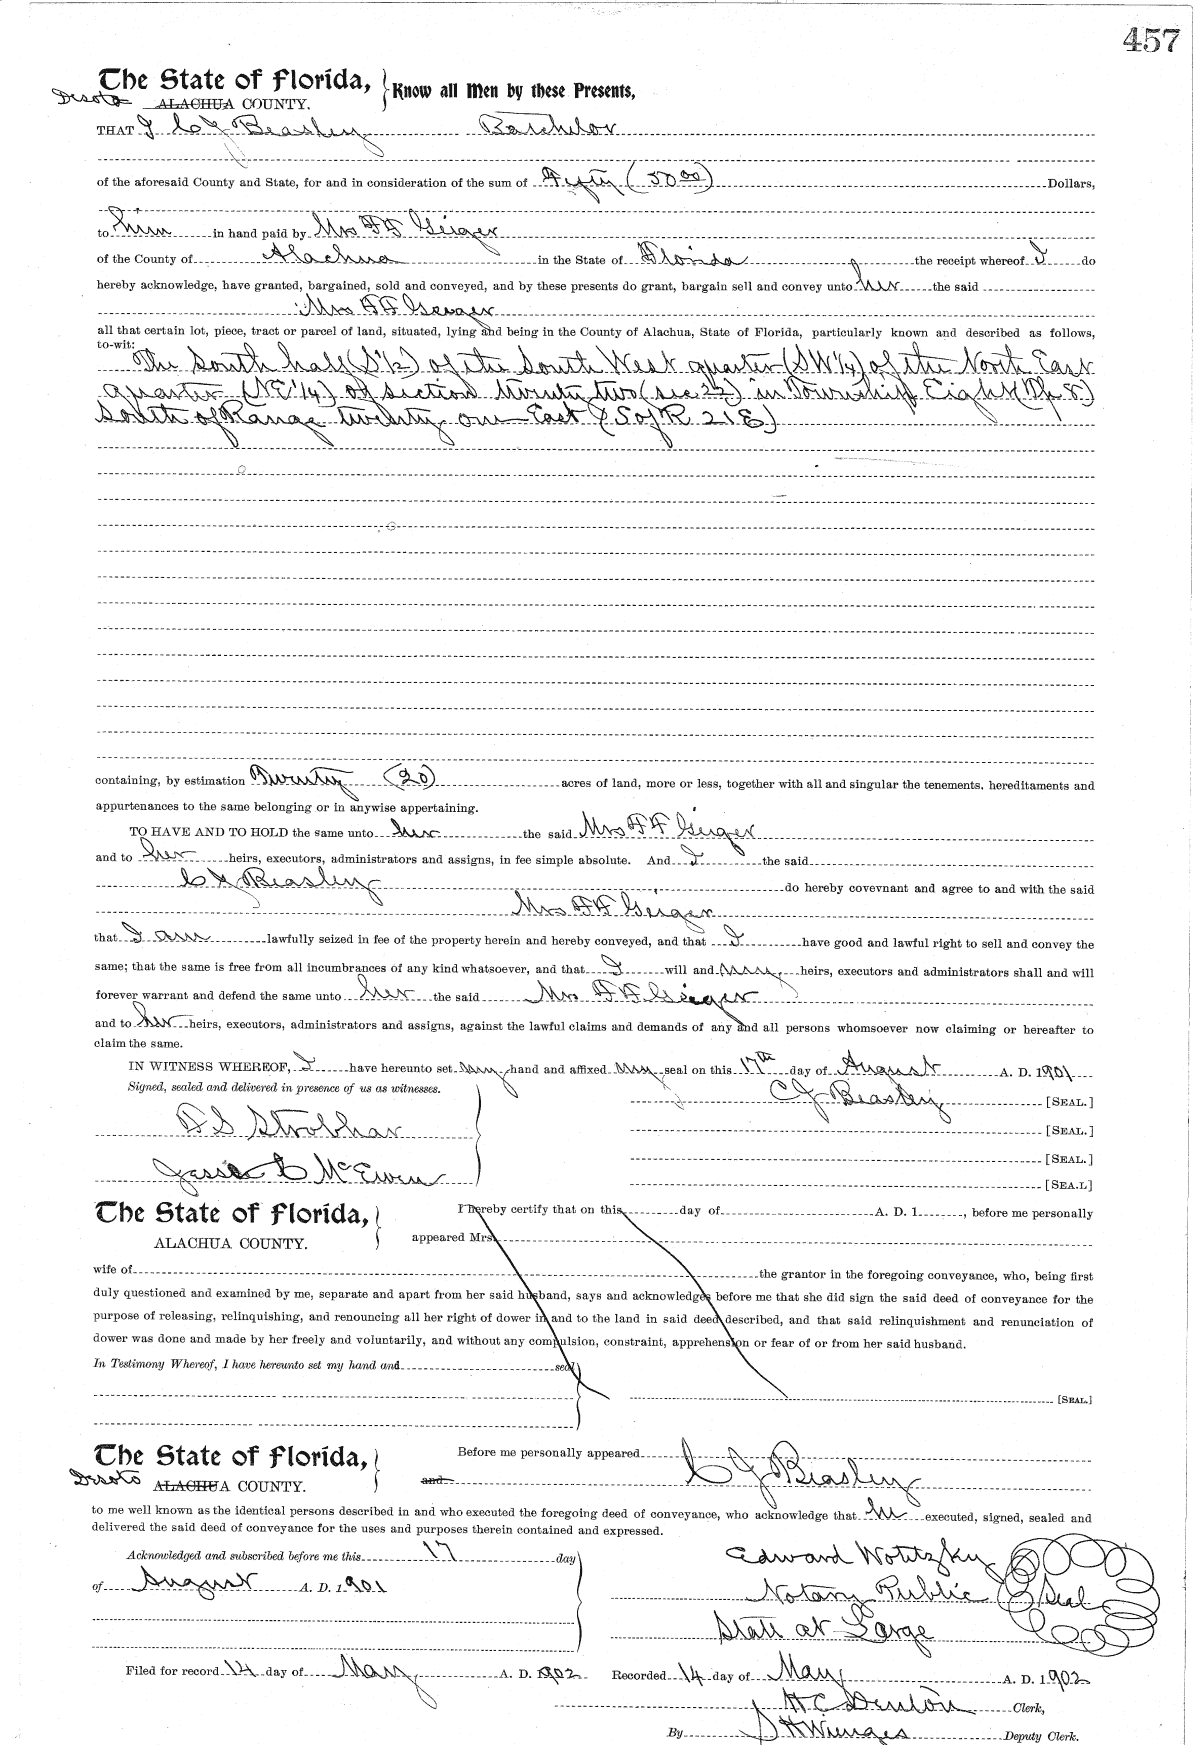 457
The State of Florida, Know all Men by these Presents,
Desoto ALACHUA COUNTY.
THAT I C J Beasley Batchelor
of the aforesaid County and State, for and in consideration of the sum of Fifty (50 00) Dollars,
to him in hand paid by Mrs F F Geiger
of the County of Alachua in the State of Florida the receipt whereof I do
hereby acknowledge, have granted, bargained, sold and conveyed, and by these presents do grant, bargain sell and convey unto her the said
Mrs F F Geiger
all that certain lot, piece, tract or parcel of land, situated, lying and being in the County of Alachua, State of Florida, particularly known and described as follows,
to-wit:
The South half (S 1/2) of the South West quarter (SW 1/4) of the North East
quarter (NE 1/4) of section twenty two (sec 22) in Township Eight (Tp 8)
South of Range twenty one East (S of R 21 E)
containing, by estimation Twenty (20) acres of land, more or less, together with all and singular the tenements, hereditaments and
appurtenances to the same belonging or in anywise appertaining.
TO HAVE AND TO HOLD the same unto her the said Mrs F F Geiger
and to her heirs, executors, administrators and assigns, in fee simple absolute. And I the said
C J Beasley do hereby covevnant and agree to and with the said
Mrs F F Geiger
that I am lawfully seized in fee of the property herein and hereby conveyed, and that I have good and lawful right to sell and convey the
same; that the same is free from all incumbrances of any kind whatsoever, and that I will and my heirs, executors and administrators shall and will
forever warrant and defend the same unto her the said Mrs F F Geiger
and to her heirs, executors, administrators and assigns, against the lawful claims and demands of any and all persons whomsoever now claiming or hereafter to
claim the same.
IN WITNESS WHEREOF, I have hereunto set my hand and affixed my seal on this 17th day of August A. D. 1901
Signed, sealed and delivered in presence of us as witnesses.
C J Beasley [SEAL.]
F S Strobhar [SEAL.]
[SEAL.]
Jessie C McEwen [SEA.L]
The State of Florida, I hereby certify that on this day of A. D. 1 , before me personally
ALACHUA COUNTY. appeared Mrs.
wife of the grantor in the foregoing conveyance, who, being first
duly questioned and examined by me, separate and apart from her said husband, says and acknowledges before me that she did sign the said deed of conveyance for the
purpose of releasing, relinquishing, and renouncing all her right of dower in and to the land in said deed described, and that said relinquishment and renunciation of
dower was done and made by her freely and voluntarily, and without any compulsion, constraint, apprehension or fear of or from her said husband.
In Testimony Whereof, I have hereunto set my hand and seal
[SEAL.]
The State of Florida, Before me personally appeared C J Beasley
Desoto ALACHUA COUNTY. and
to me well known as the identical persons described in and who executed the foregoing deed of conveyance, who acknowledge that he executed, signed, sealed and
delivered the said deed of conveyance for the uses and purposes therein contained and expressed.
Acknowledged and subscribed before me this 17 day
of August A. D. 1901
Edward Wotitzky
Notary Public Seal
State at Large
Filed for record 14 day of May A. D. 1902 Recorded 14 day of May A. D. 1902
H C Denton Clerk,
By S H Wienges Deputy Clerk.